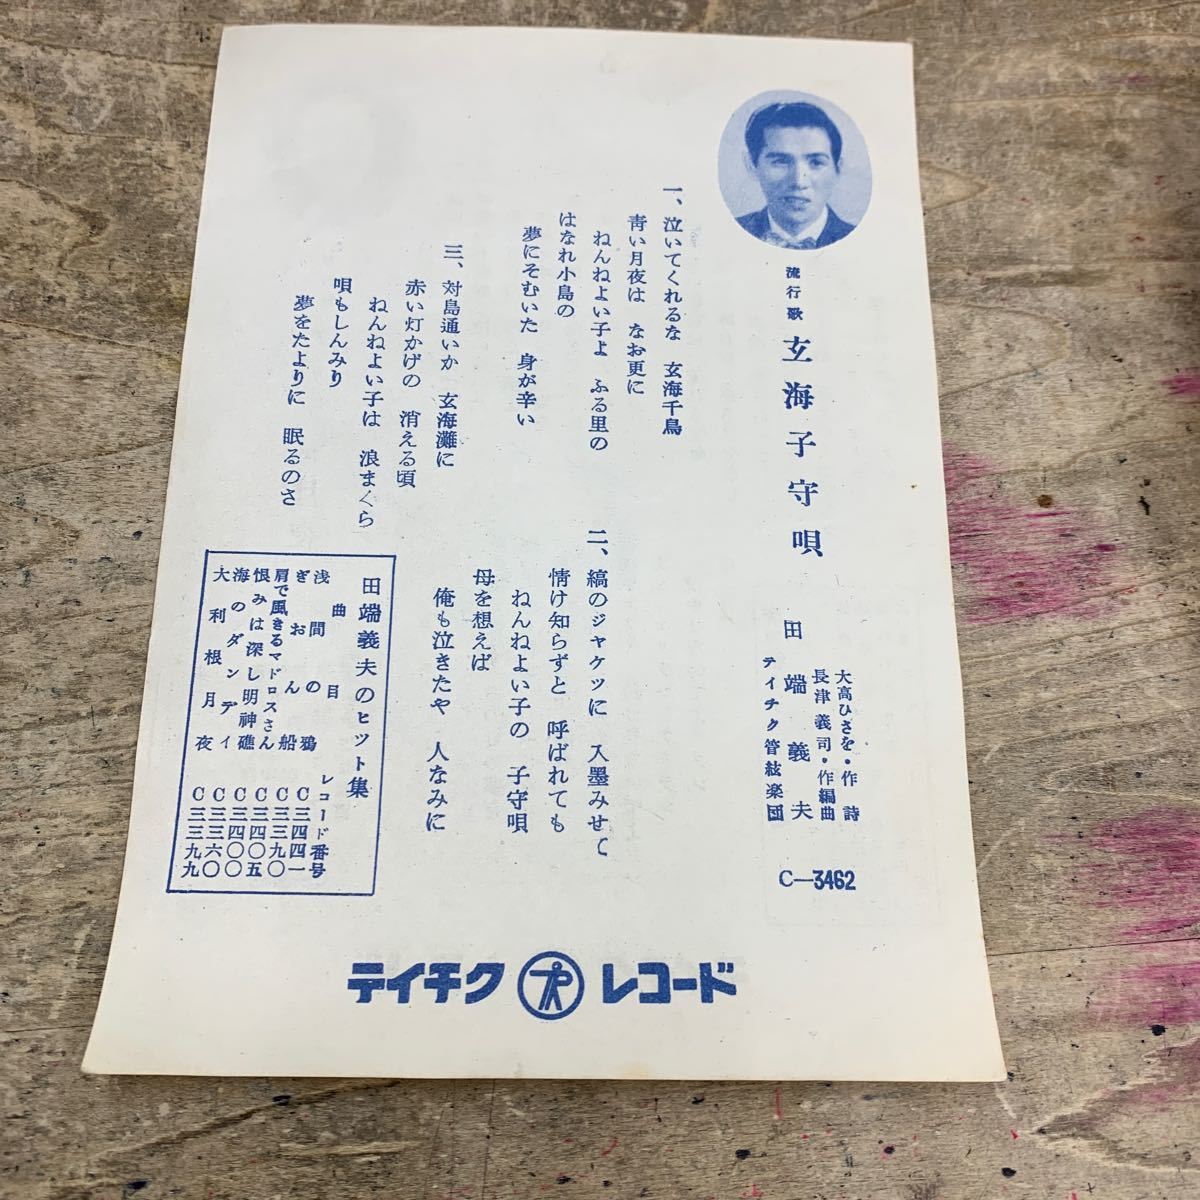 流行歌 玄海子守唄
大高ひさを・作詩
長津義司・作編曲
田端義夫
テイチク管絃楽団
C—3462
一、泣いてくれるな 玄海千鳥
青い月夜は なお更に
ねんねよい子よ ふる里の
はなれ小島の
夢にそむいた 身が辛い
二、縞のジャケツに 入墨みせて
情け知らずと 呼ばれても
ねんねよい子の 子守唄
母を想えば
俺も泣きたや 人なみに
三、対島通いか 玄海灘に
赤い灯かげの 消える頃
ねんねよい子は 浪まくら
唄もしんみり
夢をたよりに 眠るのさ
田端義夫のヒット集
曲目 レコード番号
浅間の鴉 C三四四一
ぎおん船 C三三九〇
肩で風きるマドロスさん C三四〇五
恨みは深し明神礁 C三四〇〇
海のダンデイ C三三六〇
大利根月夜 C三三九九
テイチク レコード